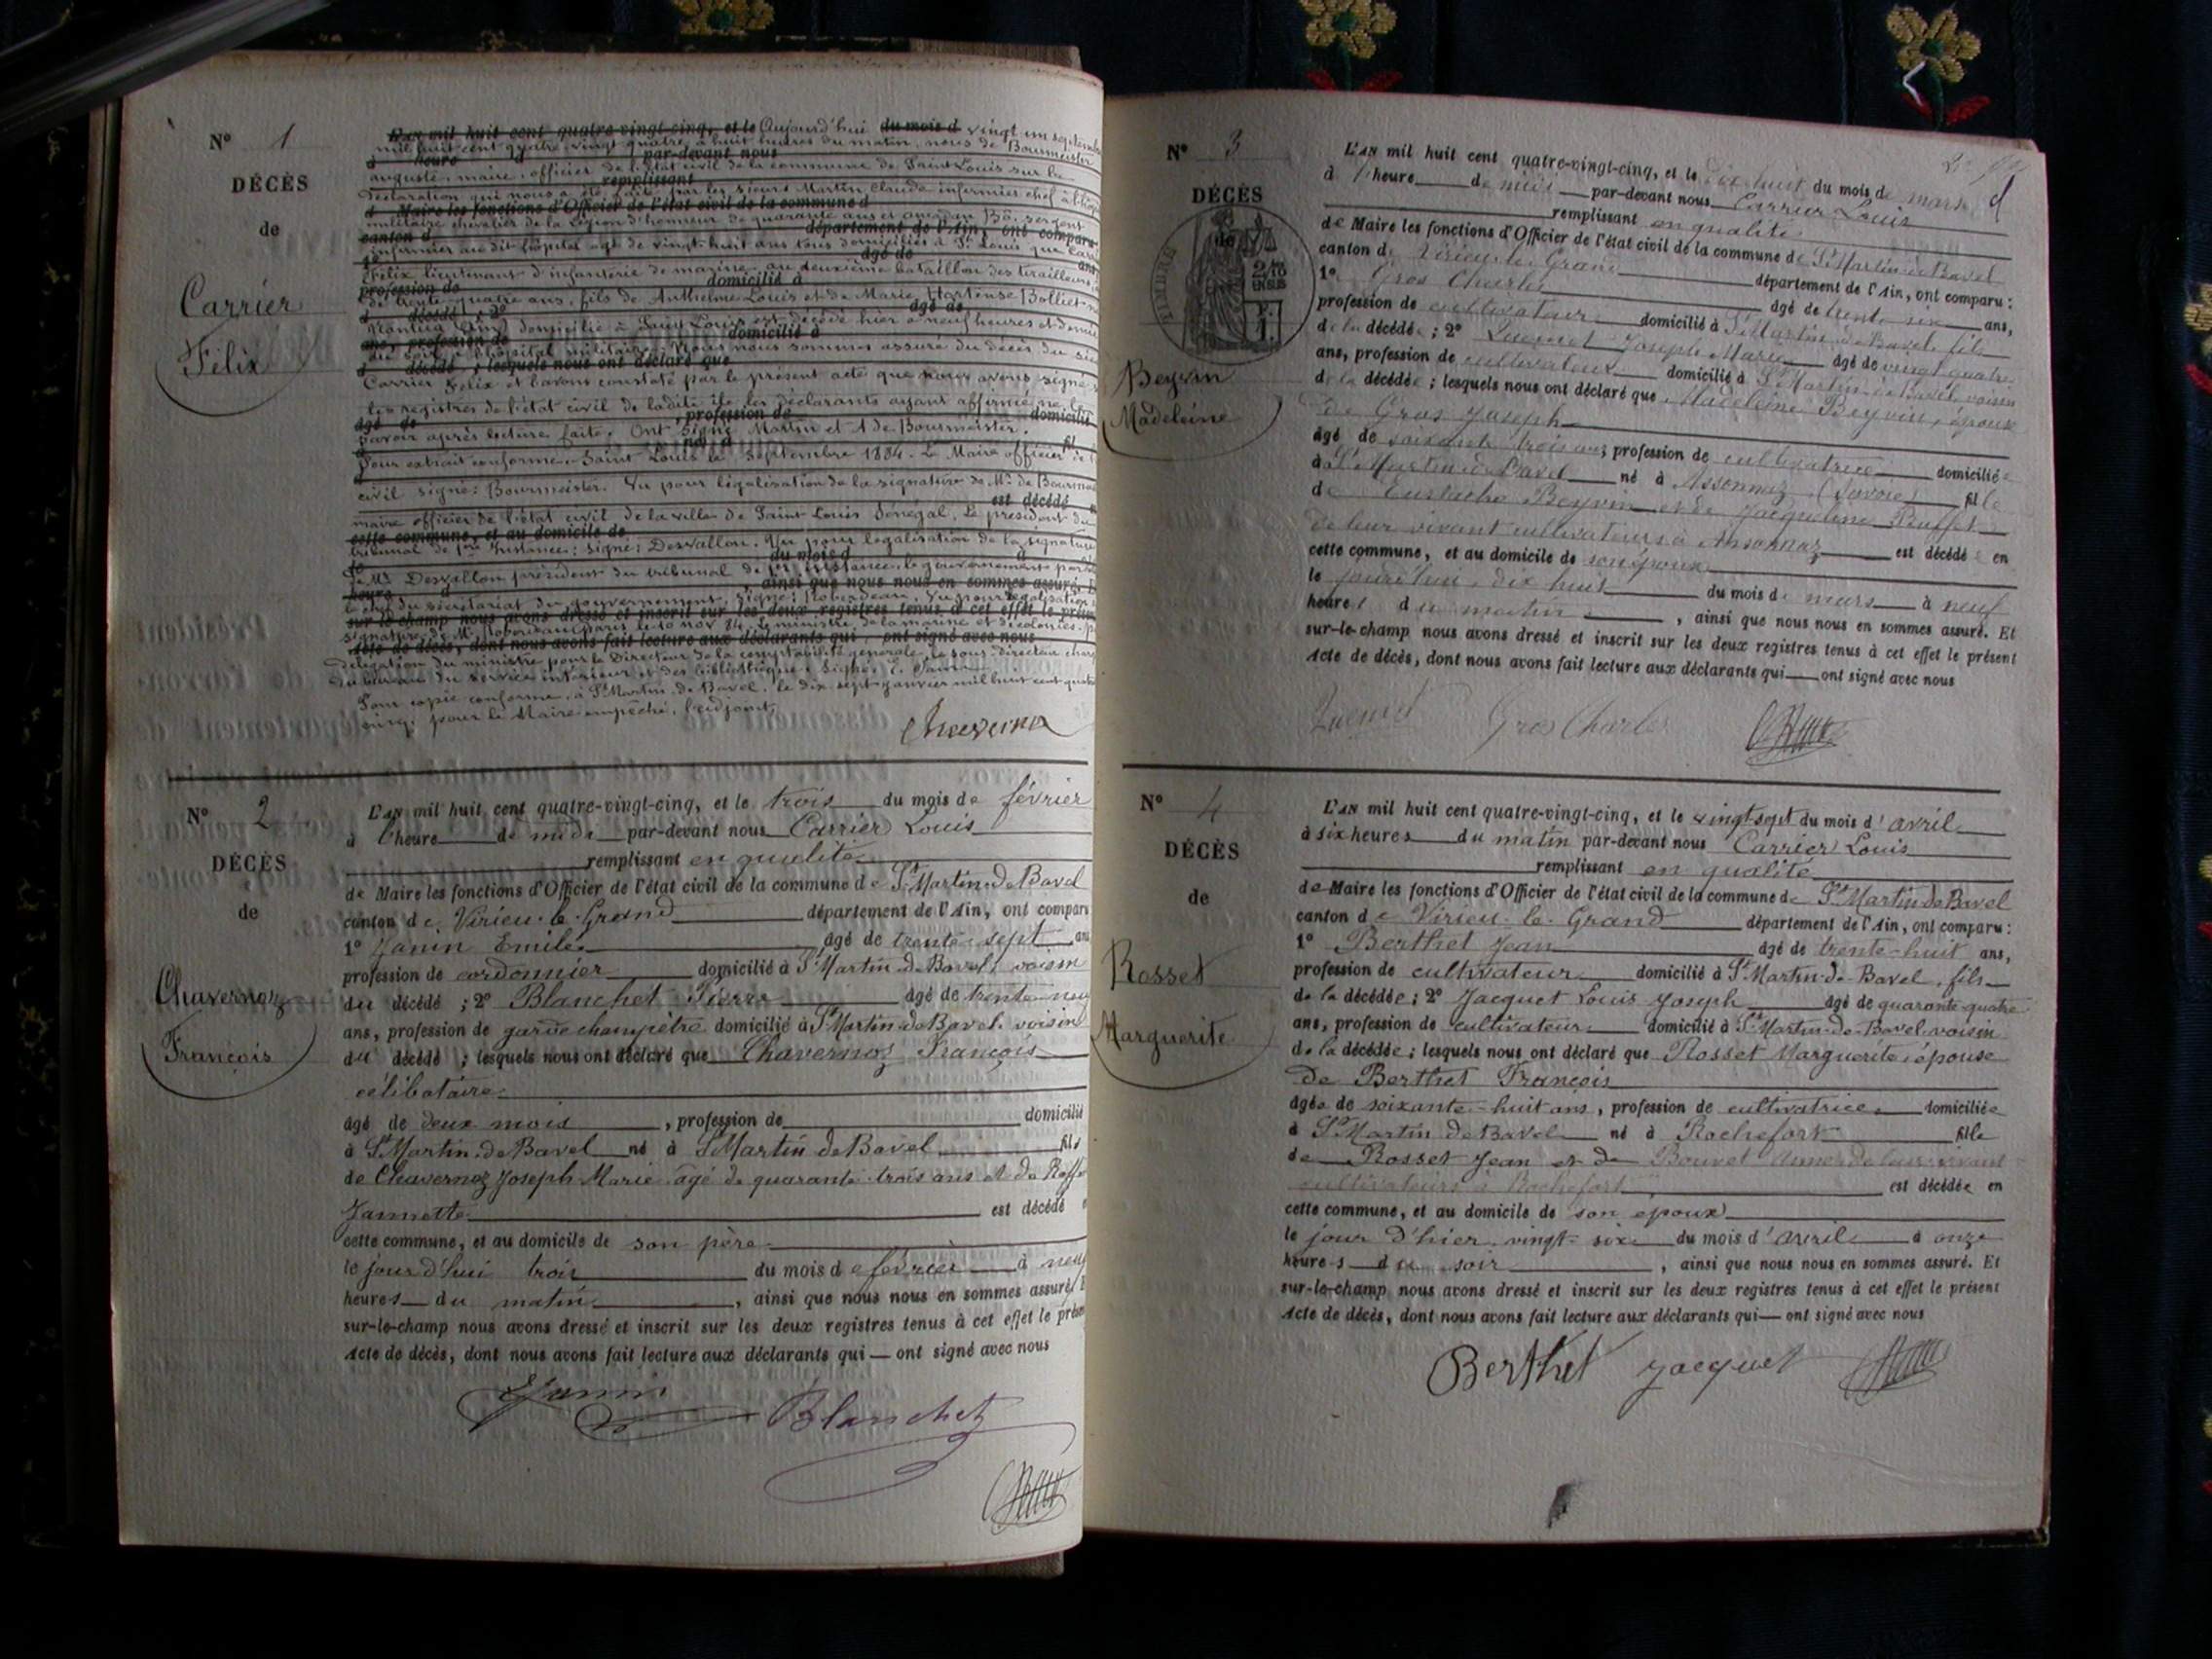 N° 1
DÉCÈS
de
Carrier
Félix
L'an mil huit cent quatre-vingt-cinq, et le Aujourd'hui du mois d vingt un septembre
mil huit cent quatre vingt quatre à huit heures du matin, nous de Bourmeister
à heure d par-devant nous
auguste, maire, officier de l'état civil de la commune de Saint Louis sur la
remplissant
déclaration qui nous a été faite par les sieurs Martin Claude infirmier chef à l'hôpi
d Maire les fonctions d'Officier de l'état civil de la commune d
militaire chevalier de la légion d'honneur de quarante ans et sergent
canton d département de l'Ain, ont comparu
infirmier au dit hôpital âgé de vingt-huit ans tous domiciliés à St Louis que Carr
âgé de ans
Félix lieutenant d'infanterie de marine au deuxième bataillon des tirailleurs
profession de domicilié à
de trente-quatre ans, fils de Anthelme Louis et de Marie Hortense Bolliet
d décédé ; 2° âgé de
Nantua (Ain) domicilié à Saint Louis est décédé hier à neuf heures et demie
ans, profession de domicilié à
du soir à l'hôpital militaire. Nous nous sommes assuré du décès du sieu
d décédé ; lesquels nous ont déclaré que
Carrier Felix et l'avons constaté par le présent acte que nous avons signé
les registres de l'état civil de ladite les déclarants ayant affirmé ne
âgé de , profession de domicilié
savoir après lecture faite. Ont signé Martin et A de Bourmeister.
né à fil
Pour extrait conforme. Saint Louis le septembre 1884. Le Maire officier de l
civil signé: Bourmeister. Vu pour légalisation de la signature de Mr de Bourme
est décédé
maire officier de l'état civil de la ville de Saint Louis Sénégal. Le président du
cette commune, et au domicile de
tribunal de 1ère Instance; signé: Desvallon. Vu pour légalisation de la signature
le du mois d à
de Mr Desvallon président du tribunal de 1ère instance, le gouvernement par
heure d , ainsi que nous nous en sommes assuré. E
le chef du secrétariat du gouvernement, signé: Robordeau. Vu pour légalisation
sur-le-champ nous avons dressé et inscrit sur les deux registres tenus à cet effet le présen
signature de Mr Robordeau Paris le 10 nov 84. Le ministre de la marine et des colonies. p
Acte de décès, dont nous avons fait lecture aux déclarants qui ont signé avec nous
délégation du ministre pour le Directeur de la comptabilité générale, le sous-directeur char
du bureau du service intérieur et des bibliothèques. Signé: E.
Pour copie conforme, à St Martin-de-Bavel, le dix sept janvier mil huit cent quatre
cinq. pour le Maire empêché, l'adjoint,
N° 2
DÉCÈS
de
Chavernoz
François
L'AN mil huit cent quatre-vingt-cinq, et le trois du mois de février
à l'heure de midi par-devant nous Carrier Louis
remplissant en qualité
de Maire les fonctions d'Officier de l'état civil de la commune de St Martin-de-Bavel
canton de Virieu-le-Grand département de l'Ain, ont comparu
1° Janin Emile âgé de trente-sept ans
profession de cordonnier domicilié à St Martin-de-Bavel, voisin
du décédé ; 2° Blanchet Pierre âgé de trente-neuf
ans, profession de garde champêtre domicilié à St Martin-de-Bavel, voisin
du décédé ; lesquels nous ont déclaré que Chavernoz François
célibataire
âgé de deux mois , profession de domicilié
à St Martin-de-Bavel né à St Martin de Bavel fils
de Chavernoz Joseph Marie âgé de quarante-trois ans et de
Jannette est décédé
cette commune, et au domicile de son père
le jour d'hui trois du mois de février à neuf
heures du matin , ainsi que nous nous en sommes assuré. E
sur-le-champ nous avons dressé et inscrit sur les deux registres tenus à cet effet le présen
Acte de décès, dont nous avons fait lecture aux déclarants qui — ont signé avec nous
EJanin Blanchet
N° 3
DÉCÈS
TIMBRE
de
Beyrin
Madeleine
L'AN mil huit cent quatre-vingt-cinq, et le dix huit du mois de mars
à l'heure de midi par-devant nous Carrier Louis
remplissant en qualité
de Maire les fonctions d'Officier de l'état civil de la commune de St Martin-de-Bavel
canton de Virieu-le-Grand département de l'Ain, ont comparu :
1° Gros Charles âgé de trente-six ans,
profession de cultivateur domicilié à St Martin-de-Bavel, fils
de la décédée ; 2° Joseph Marie âgé de vingt quatre
ans, profession de cultivateur domicilié à St Martin-de-Bavel voisin
de la décédée ; lesquels nous ont déclaré que Madeleine Beyrin, épouse
de Gros Joseph
âgé de soixante trois ans, profession de cultivatrice domiciliée
à St Martin-de-Bavel né à Assonnaz (Savoie) fille
de Eustache Beyrin et de Jacqueline
de leur vivant cultivateurs à Assonnaz est décédée en
cette commune, et au domicile de son époux
le jourd'hui dix huit du mois de mars à neuf
heures du matin , ainsi que nous nous en sommes assuré. Et
sur-le-champ nous avons dressé et inscrit sur les deux registres tenus à cet effet le présent
Acte de décès, dont nous avons fait lecture aux déclarants qui — ont signé avec nous
Gros Charles
N° 4
DÉCÈS
de
Rosset
Marguerite
L'AN mil huit cent quatre-vingt-cinq, et le vingt-sept du mois d'avril
à six heures du matin par-devant nous Carrier Louis
remplissant en qualité
de Maire les fonctions d'Officier de l'état civil de la commune de St Martin-de-Bavel
canton de Virieu-le-Grand département de l'Ain, ont comparu :
1° Berthet Jean âgé de trente-huit ans,
profession de cultivateur domicilié à St Martin-de-Bavel, fils
de la décédée ; 2° Jacquet Louis Joseph âgé de quarante-quatre
ans, profession de cultivateur domicilié à St Martin-de-Bavel voisin
de la décédée ; lesquels nous ont déclaré que Rosset Marguerite épouse
de Berthet François
âgée de soixante-huit ans, profession de cultivatrice domiciliée
à St Martin de Bavel né à Rochefort fille
de Rosset Jean et de Bouvet Anne de leur vivant
cultivateurs à Rochefort est décédée en
cette commune, et au domicile de son époux
le jour d'hier vingt-six du mois d'avril à onze
heures du soir , ainsi que nous nous en sommes assuré. Et
sur-le-champ nous avons dressé et inscrit sur les deux registres tenus à cet effet le présent
Acte de décès, dont nous avons fait lecture aux déclarants qui — ont signé avec nous
Berthet Jacquet